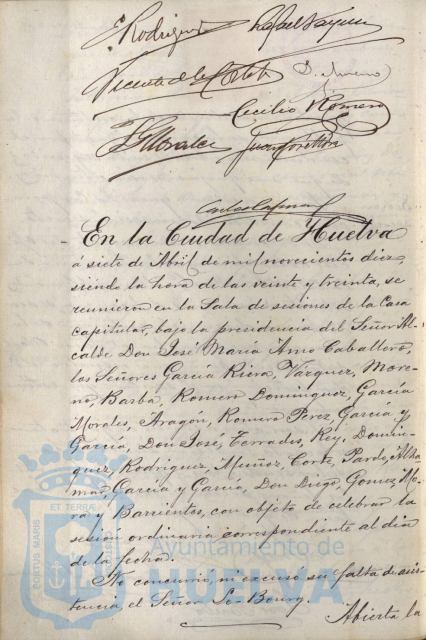 E. Rodriguez Rafael Vazquez
Vicente de la Corte B. Moreno
Cecilio Romero
G. Morales Juan
En la Ciudad de Huelva
á siete de Abril de mil novecientos diez,
siendo la hora de las veinte y treinta, se
reunieron en la Sala de sesiones de la Casa
capitular, bajo la presidencia del Señor Al-
calde Don José María Amo Caballero,
los Señores García Riera, Vázquez, More-
no, Barba, Romero Dominguez, García
Morales, Aragón, Romero Perez, García y
García, Don José, Terrades, Rey, Domin-
guez, Rodriguez, Muñoz, Corte, Pardo, Alha-
mar, García y García, Don Diego, Gomez Mo-
ra y Barrientos, con objeto de celebrar la
sesión ordinaria correspondiente al día
de la fecha.
No concurrió, ni excusó su falta de asis-
tencia el Señor Le-Bourg.
Abierta la
PORTUS MARIS ET TERRAE
Ayuntamiento de
HUELVA